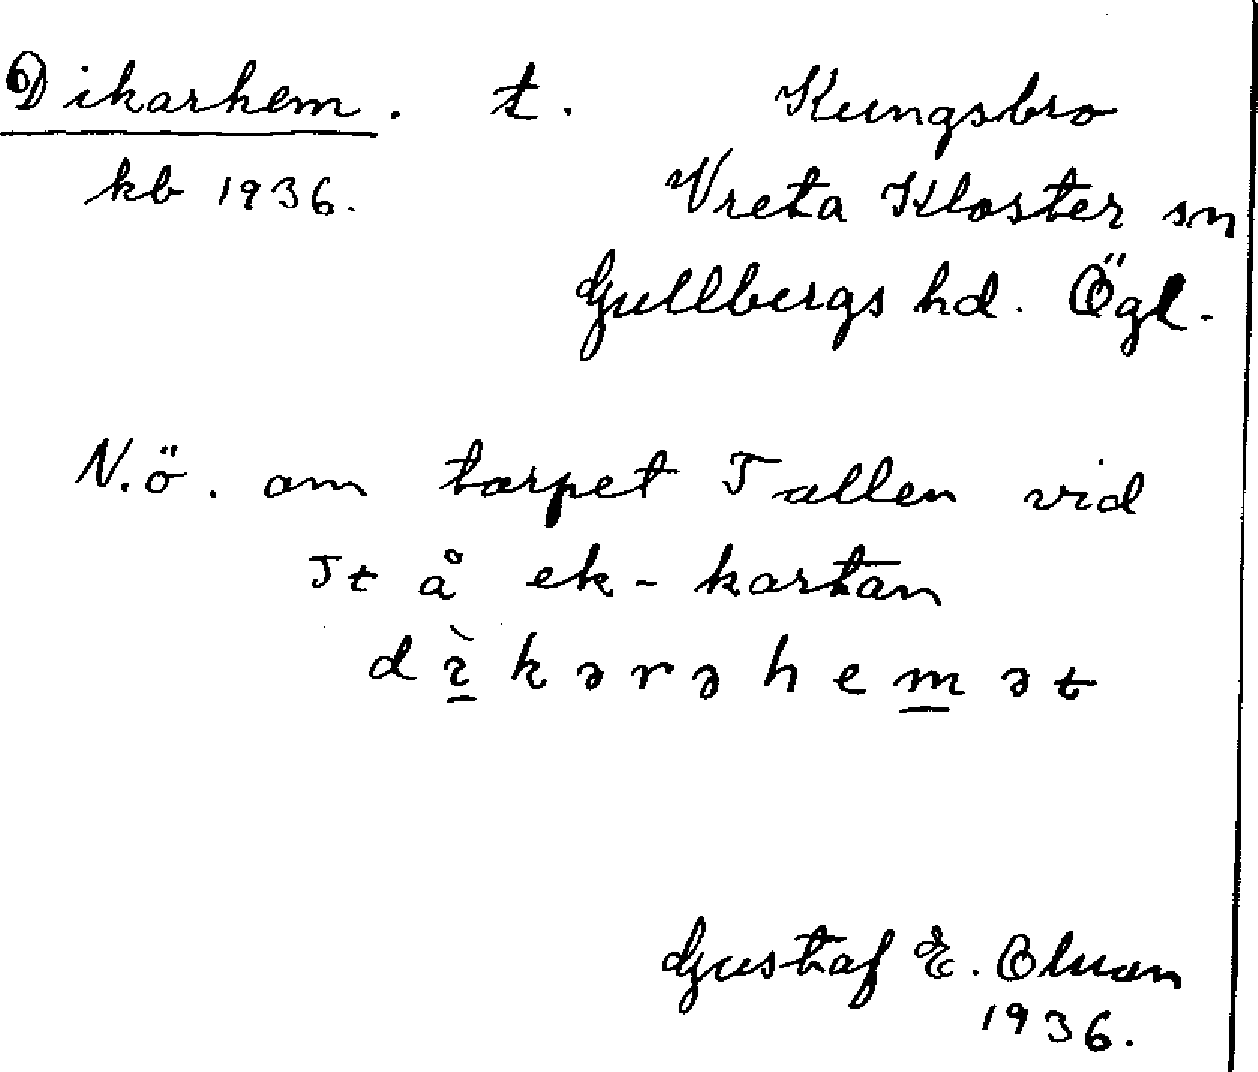 Dikarhem. t. Kungsbro
kb 1936. Vreta Kloster sn
Gullbergs hd. Ögl.
N.ö. om torpet Tallen vid
Tt å ek-kartan
dı̀kərəhemət
Gustaf E. Olsson
1936.